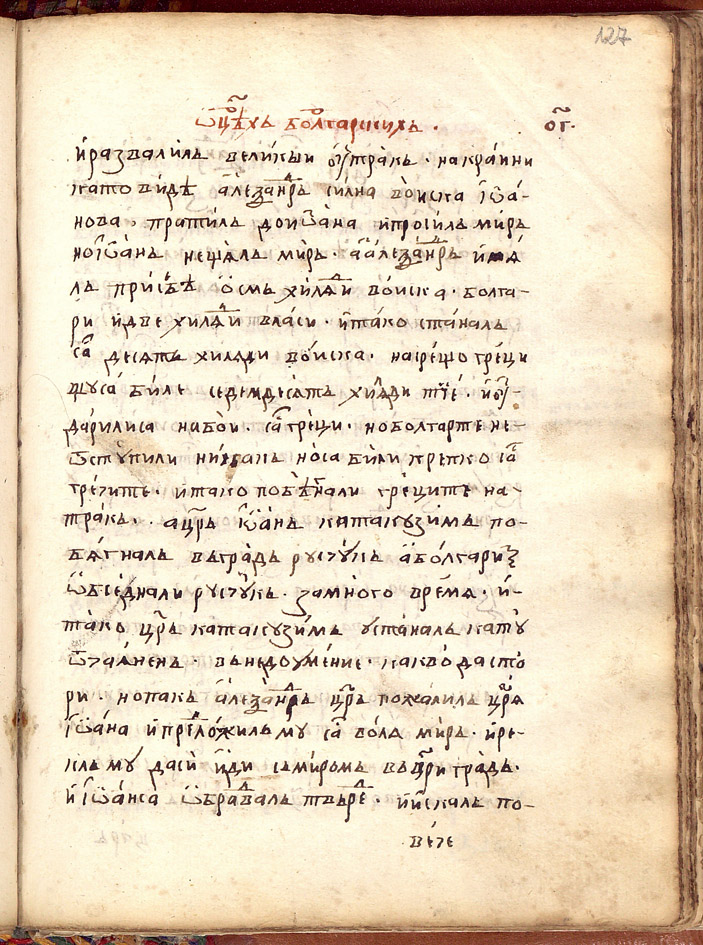 127
ѿ цр҃ѣхъ болгарскихъ . ог҃.
и҆ развалилъ великїи ѡ҆трокъ · на краини
като видѣ а҆леѯандръ силна во̀иска і҆ѡа́-
нова , пратилъ до и҆ѡана и҆ просилъ миръ
но і҆ѡанъ не щялъ миръ · а҆ а҆леѯандръ и҆мая́
лъ при себѣ ѻ҆смъ хиляди во̀иска · болга-
ри и҆ две хиляди власи · и҆ тако сталъ
са десять хиляди во̀иска · на срещо греци
що са биле седемдесять хиляди тїе · и҆ ѹ҆-
дарилиса на бои · са греци · но болгарте не
ѿступили никакъ но са били крепко са
гречите · и҆ тако побѣгнали греците на-
тракъ . а҆ цр҃ь і҆ѡанъ катакузимъ по-
бягналъ въ градъ русчукъ а҆ болгари
ѡ҆бседнали русчукъ · за много время · и҆-
тако цр҃ь катакузимъ ѹ҆станалъ като
ѿчаяненъ · въ недоумение · какво да сто-
ри · но пакъ а҆леѯандръ цр҃ь пожалилъ цр҃я
і҆ѡана и҆ предложилъ му са воля миръ · и҆ ре-
клъ му да си и҆ди съ миромъ въ цр҃иградъ ·
и҆ і҆ѡан са ѡ҆бравалъ твърде · и҆ и҆скалъ по-
вече